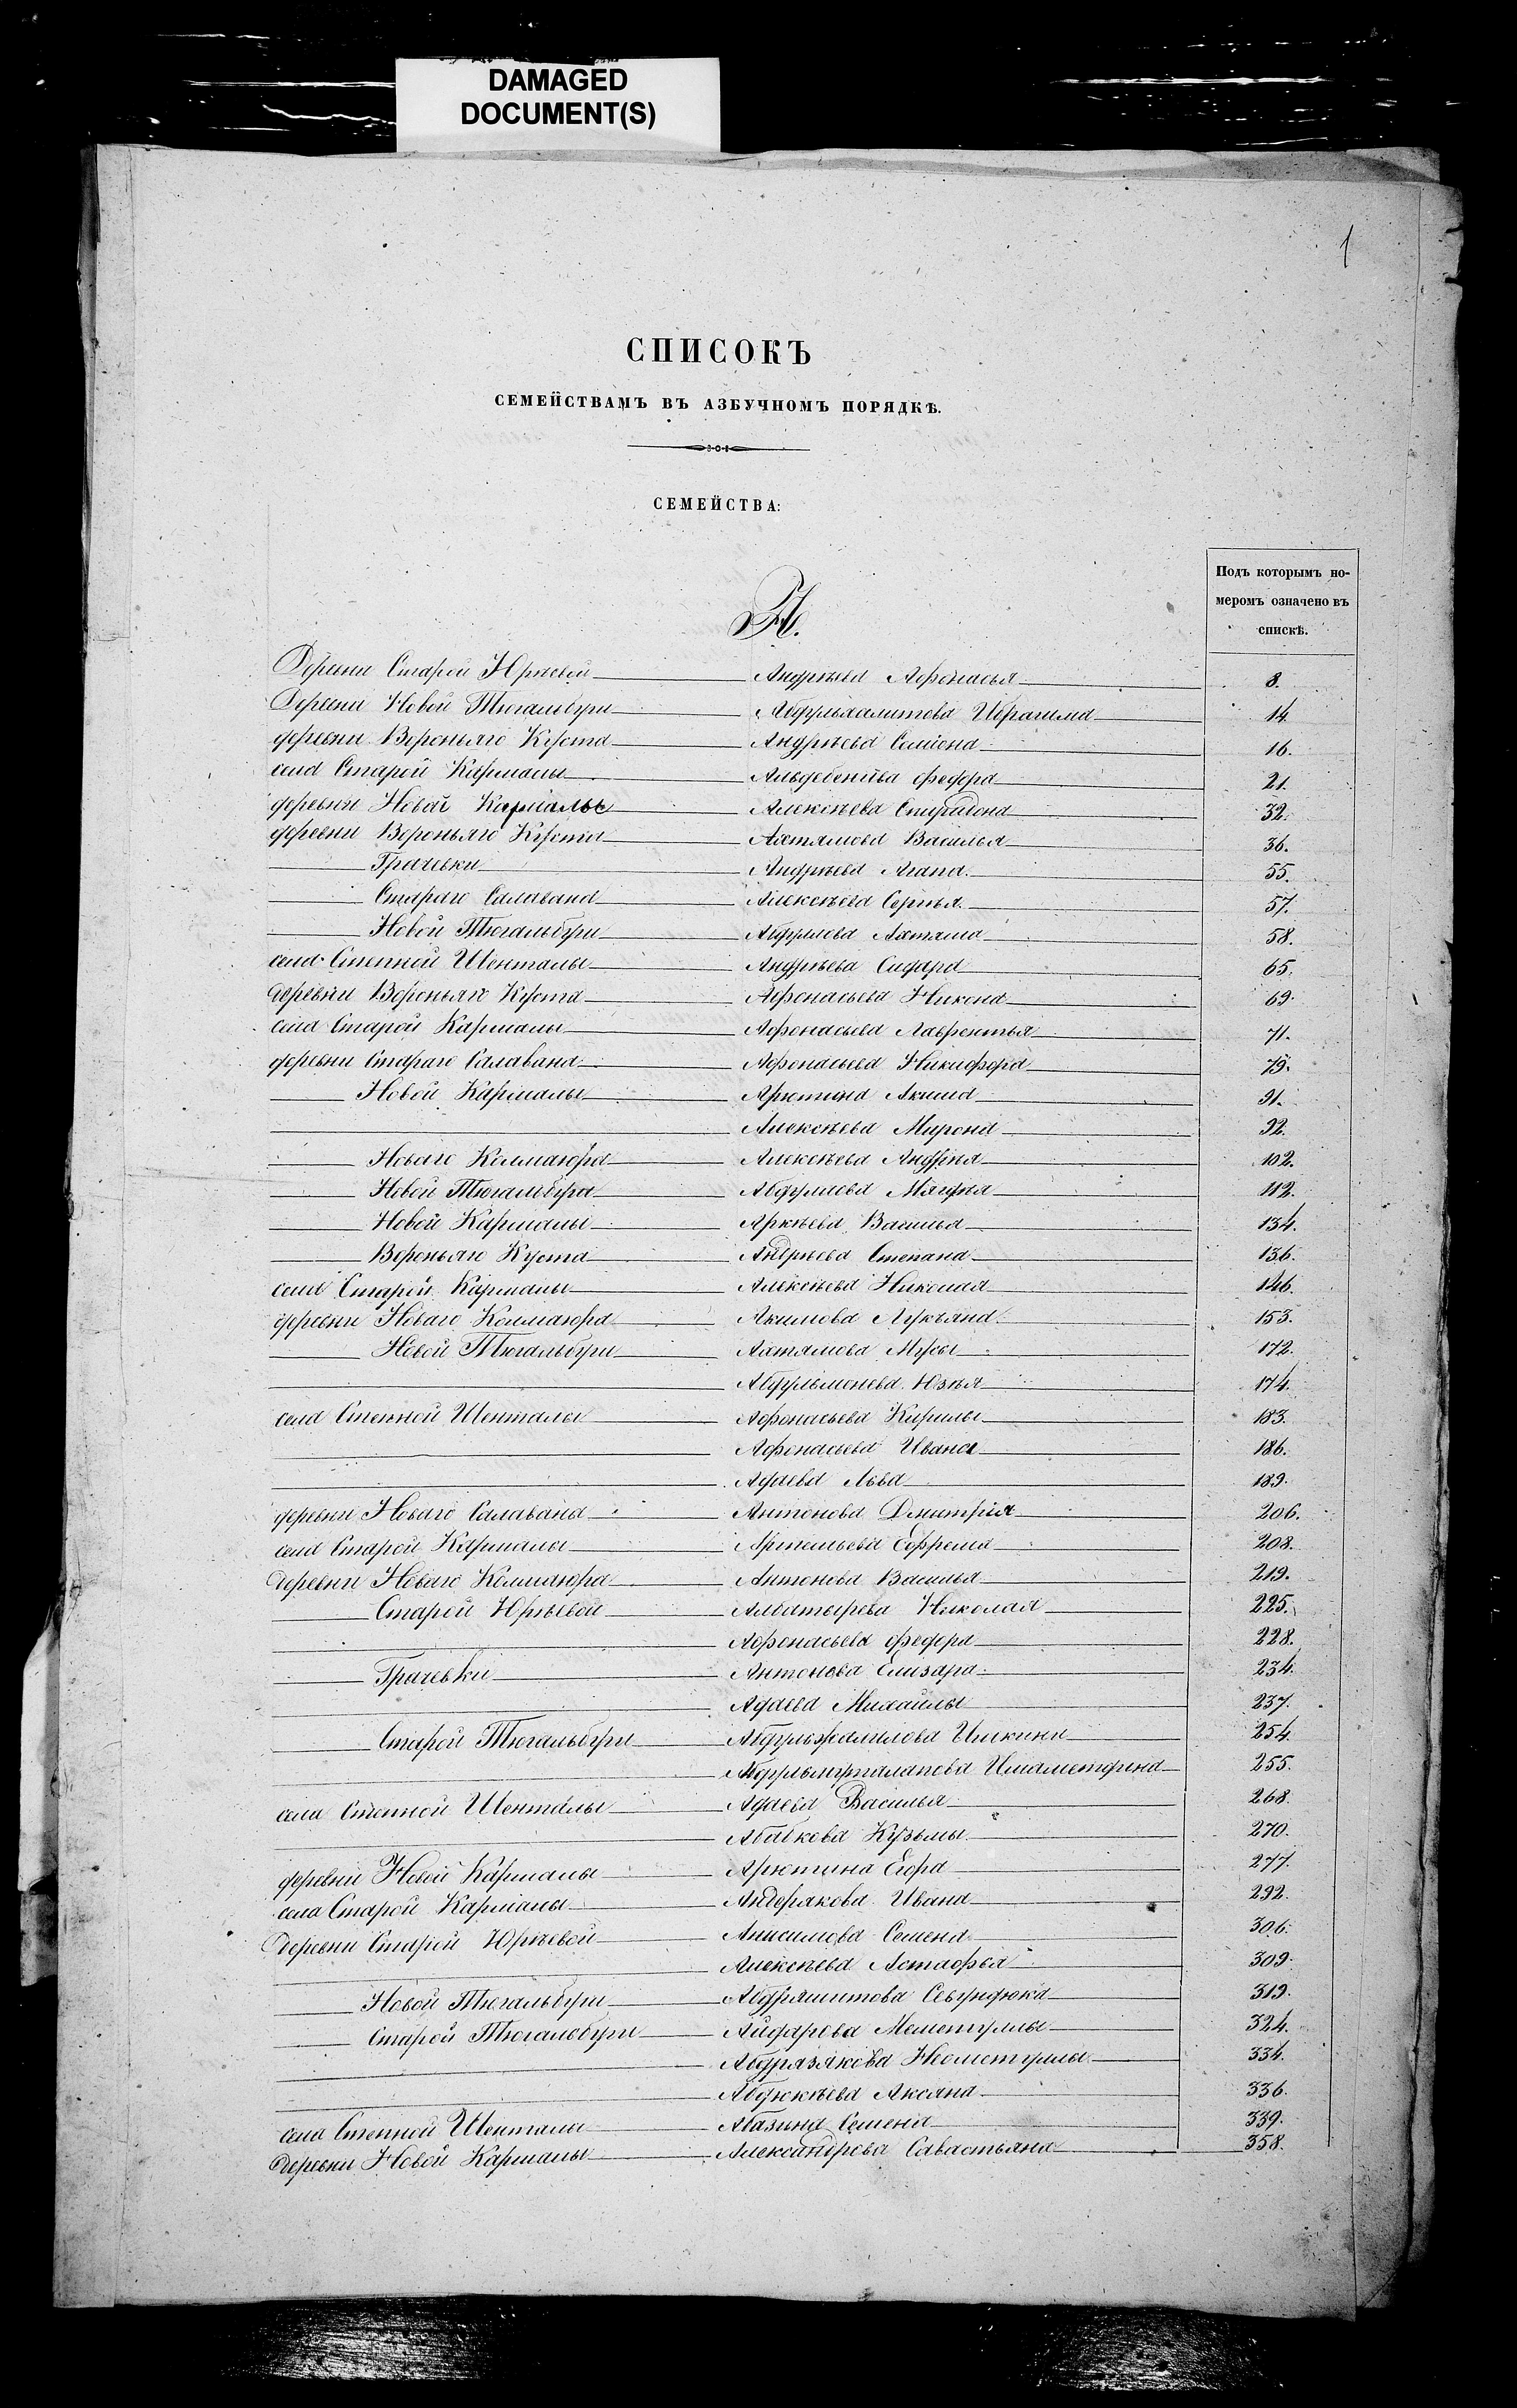 DAMAGED
DOCUMENT(S)
1
СПИСОКЪ
СЕМЕЙСТВАМЪ ВЪ АЗБУЧНОМЪ ПОРЯДКѢ.
СЕМЕЙСТВА:
Подъ которымъ но-
меромъ означено въ
спискѣ.
А.
Деревни Старой Юреевой Андрѣева Афонасья 8.
Деревни Новой Тюгальбуги Абдульхалитова Ибрагима 14.
деревни Вороньяго Куста Андрѣева Семіона 16.
села Старой Кармалы Федора 21.
деревни Новой Кармалы Алексѣева Спиридона 32.
деревни Вороньяго Куста Ахтямова Василья 36.
Грачевки Андрѣева Агапа 55.
Стараго Салавана Алексѣева Сергѣя 57.
Новой Тюгальбуги Абдулова Ахтяма 58.
села Степной Шенталы Андрѣева Сидара 65.
деревни Вороньяго Куста Афонасьева Никона 69.
села Старой Кармалы Афонасьева Лаврентья 71.
деревни Стараго Салавана Афонасьева Никифора 79.
Новой Кармалы Арютина Акима 91.
Алексѣева Мирона 92.
Новаго Колмаюра Алексѣева Андрѣя 102.
Новой Тюгальбуги Абдулова 112.
Новой Кармалы Аркѣева Василья 134.
Вороньяго Куста Андрѣева Степана 136.
села Старой Кармалы Алексѣева Николая 146.
деревни Новаго Колмаюра Акимова Лукъяна 153.
Новой Тюгальбуги Ахтямова Мусы 172.
Абдульменева 174.
села Степной Шенталы Афонасьева Кирилы 183.
Афонасьева Ивана 186.
Адаева Льва 189.
деревни Новаго Салавана Антонова Дмитрія 206.
села Старой Кармалы Артемьева Ефрема 208.
деревни Новаго Колмаюра Антонова Василья 219.
Старой Юреевой Албатырева Николая 225.
Афонасьева Федора 228.
Грачевки Антонова Елизара 234.
Адаева Михайлы 237.
Старой Тюгальбуги Абдульжалилова Ишкини 254.
Абдульмуталапова 255.
села Степной Шенталы Адаева Василья 268.
Абабкова Кузьмы 270.
деревни Новой Кармалы Арютина Егора 277.
села Старой Кармалы Андерякова Ивана 292.
деревни Старой Юреевой Анисимова Семена 306.
Алексѣева Астафья 309.
Новой Тюгальбуги Абдряшитова Севундюка 319.
Старой Тюгальбуги Айдарова Меметуллы 324.
Абдрязякова 334.
Абдюкѣева Аксана 336.
села Степной Шенталы Абазина Семена 339.
деревни Новой Кармалы Александрова Савастьяна 358.